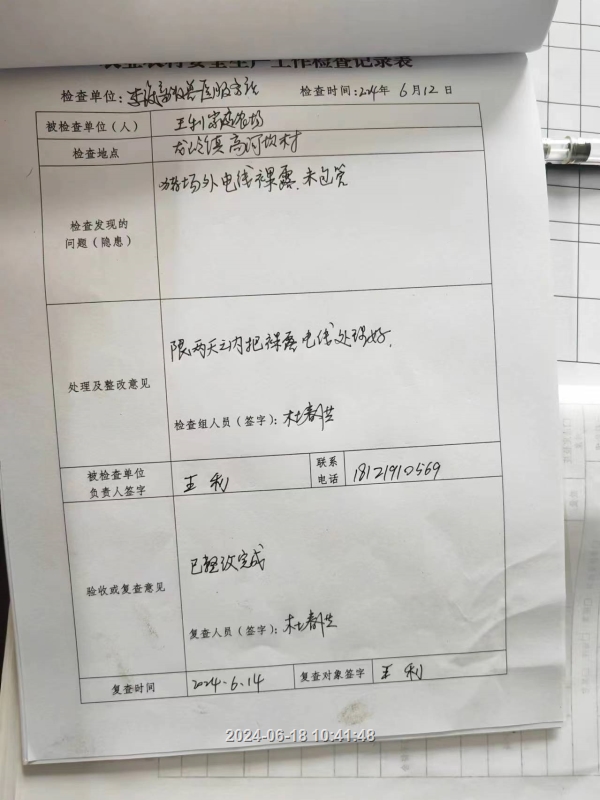 农业农村安全生产工作检查记录表
检查单位: 畜牧兽医服务站 检查时间: 2024年 6月12日
被检查单位(人) 王利家庭农场
检查地点 龙岭镇高河坎村
检查发现的
问题(隐患)
猪场外电线裸露,未包管
处理及整改意见
限两天之内把裸露电线处理好.
检查组人员(签字):杜春兰
被检查单位
负责人签字
王利
联系
电话
18121910569
验收或复查意见
已整改完成
复查人员(签字):杜春兰
复查时间 2024.6.14 复查对象签字 王利
2024-06-18 10:41:48